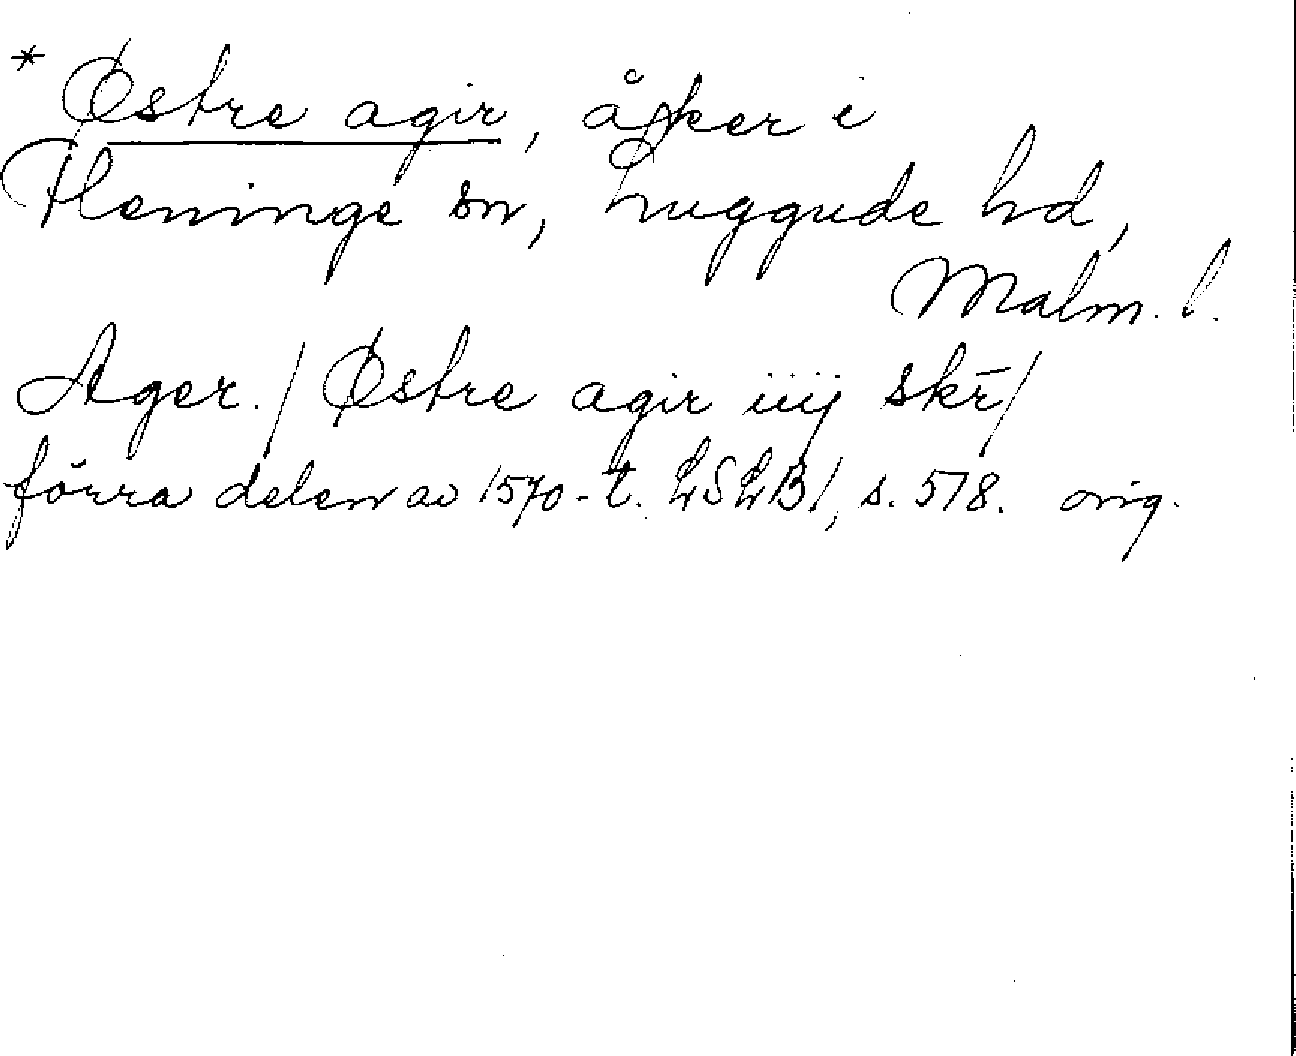 * Østre agir, åker i
Fleninge sn, Luggude hd,
Malm. l.
Ager. / Østre agir iiij skr̄ /
förra delen av 1570-t. LSLB 1, s. 578. orig.